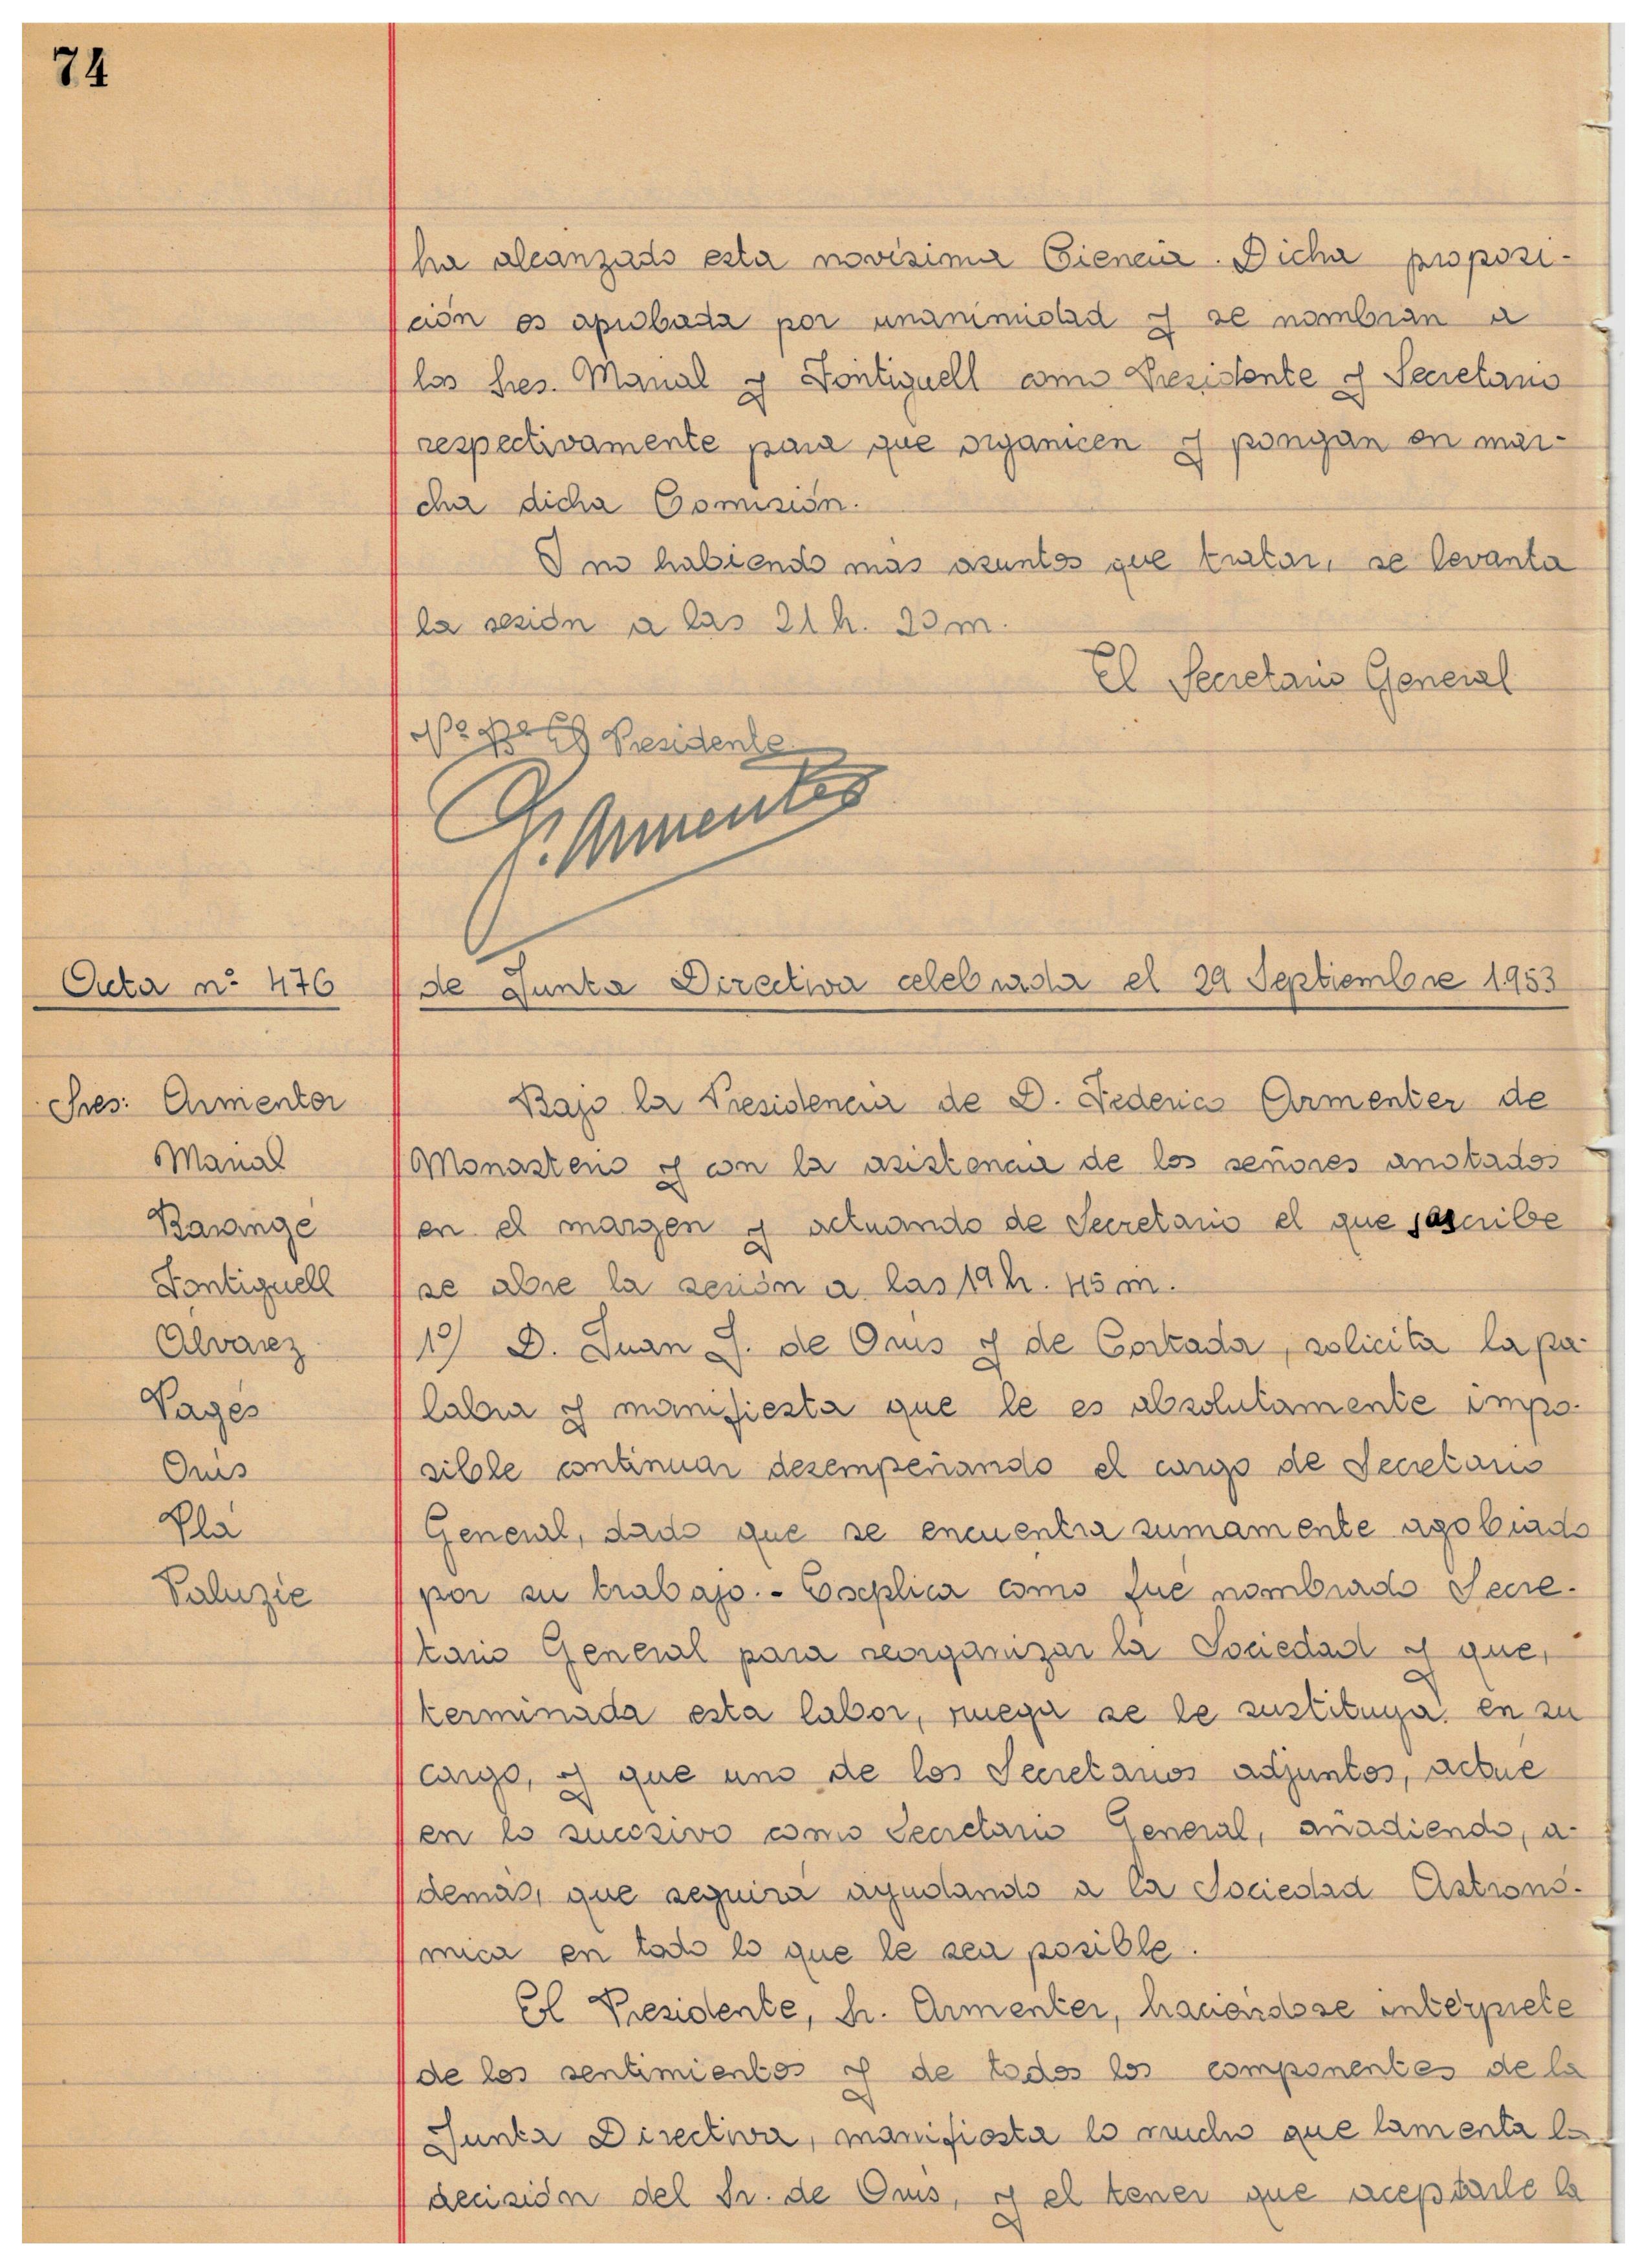 74
ha alcanzado esta novísima Ciencia. Dicha proposi-
ción es aprobada por unanimidad y se nombran a
los Sres. Marial y Fontiguell como Presidente y Secretario
respectivamente para que organicen y pongan en mar-
cha dicha Comisión.
I no habiendo mas asuntos que tratar, se levanta
la sesión a las 21 h. 20 m.
El Secretario General
Vº Bº El Presidente
F. Armenter
Acta nº 476 de Junta Directiva celebrada el 29 Septiembre 1953
Sres: Armenter
Marial
Baringé
Fontiguell
Alvarez
Pagés
Orús
Plá
Paluzíe
Bajo la Presidencia de D. Federico Armenter de
Monasterio y con la asistencia de los señores anotados
en el margen y actuando de Secretario el que suscribe
se abre la sesión a las 19 h. 45 m.
1º) D. Juan J. de Orús y de Cortada, solicita la pa-
labra y manifiesta que le es absolutamente impo-
sible continuar desempeñando el cargo de Secretario
General, dado que se encuentra sumamente agobiado
por su trabajo. - Esplica como fué nombrado Secre-
tario General para reorganizar la Sociedad y que,
terminada esta labor, ruega se le sustituya en su
cargo, y que uno de los Secretarios adjuntos, actue
en lo sucesivo como Secretario General, añadiendo, a-
demás, que seguirá ayudando a la Sociedad Astronó-
mica en todo lo que le sea posible.
El Presidente, Sr. Armenter, haciéndose intérprete
de los sentimientos y de todos los componentes de la
Junta Directiva, manifiesta lo mucho que lamenta la
decisión del Sr. de Orús, y el tener que aceptarle la